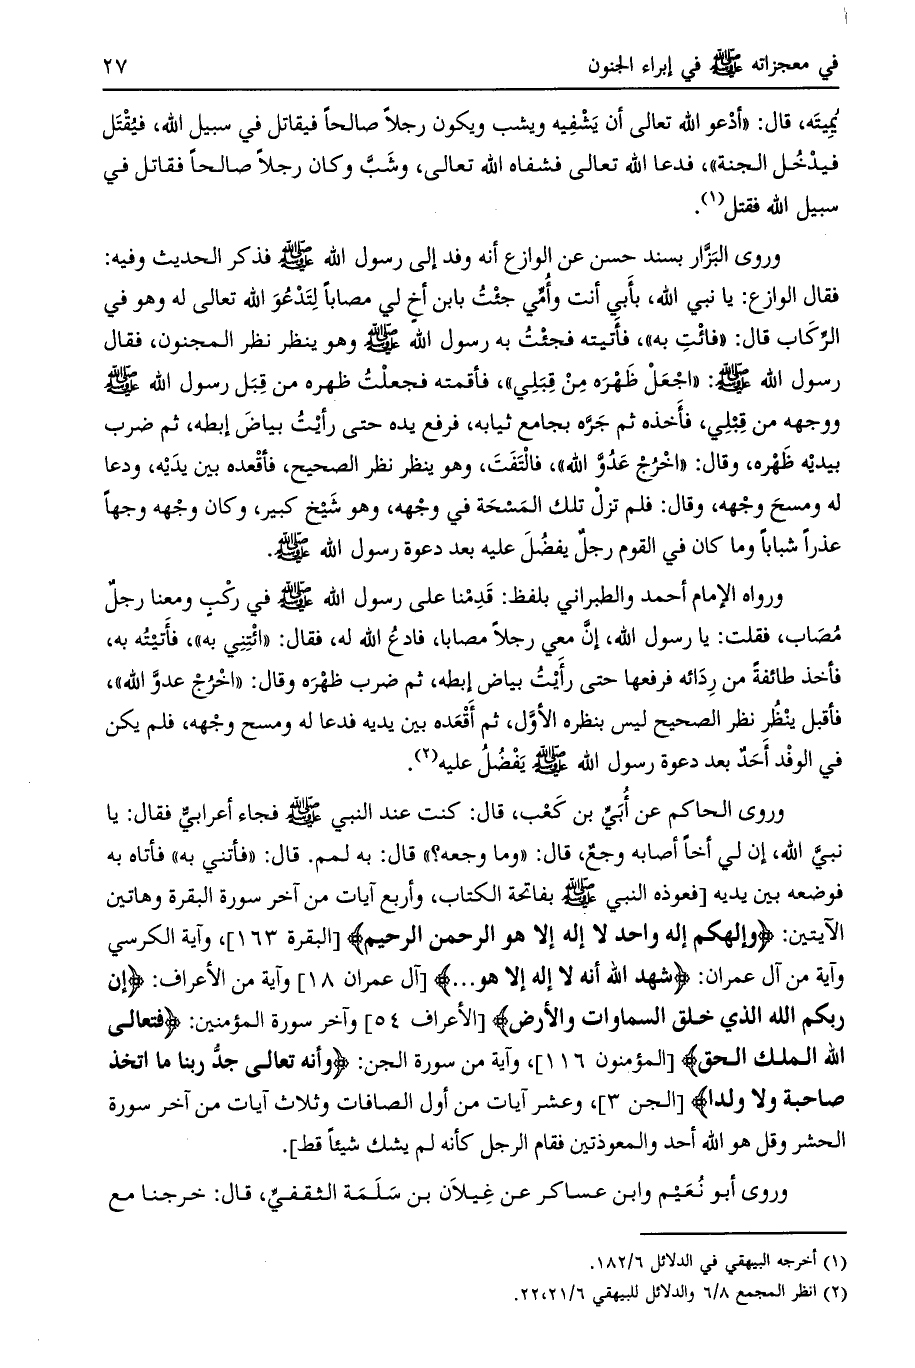 في معجزاته ﷺ في إبراء الجنون ٢٧
يُمِيتَه، قال: «أدْعو الله تعالى أن يَشْفِيه ويشب ويكون رجلاً صالحاً فيقاتل في سبيل الله، فيُقْتَل
فيدْخُل الجنة»، فدعا الله تعالى فشفاه الله تعالى، وشَبَّ وكان رجلاً صالحاً فقاتل في
سبيل الله فقتل(١).
وروى البَزَّار بسند حسن عن الوازع أنه وفد إلى رسول الله ﷺ فذكر الحديث وفيه:
فقال الوازع: يا نبي الله، بأَبي أنت وأُمِّي جئْتُ بابن أخٍ لي مصاباً لِتَدْعُوَ الله تعالى له وهو في
الرِّكَاب قال: «فائْتِ به»، فأتيته فجئْتُ به رسول الله ﷺ وهو ينظر نظر المجنون، فقال
رسول الله ﷺ: «اجْعَلْ ظَهْرَه مِنْ قِبَلِي»، فأقمته فجعلْتُ ظهره من قِبَل رسول الله ﷺ
ووجهه من قِبْلِي، فأَخذه ثم جَرَّه بجامع ثيابه، فرفع يده حتى رأيْتُ بياضَ إبطه، ثم ضرب
بيديْه ظَهْره، وقال: «اخْرُجْ عَدُوَّ الله»، فالْتَفَتَ، وهو ينظر نظر الصحيح، فأقْعده بين يدَيْه، ودعا
له ومسحَ وجْهه، وقال: فلم تزلْ تلك المَسْحَة في وجْهه، وهو شَيْخ كبير، وكان وجْهه وجهاً
عذراً شباباً وما كان في القوم رجلٌ يفضُلَ عليه بعد دعوة رسول الله ﷺ.
ورواه الإمام أحمد والطبراني بلفظ: قَدِمْنا على رسول الله ﷺ في ركْبٍ ومعنا رجلٌ
مُصَاب، فقلت: يا رسول الله، إنَّ معي رجلاً مصابا، فادعُ الله له، فقال: «ائْتِنِي به»، فأَتيْتُه به،
فأخذ طائفةً من رِدَائه فرفعها حتى رأَيْتُ بياض إبطه، ثم ضرب ظهْرَه وقال: «اخْرُجْ عدوَّ الله»،
فأقبل ينْظُر نظر الصحيح ليس بنظره الأوَّل، ثم أَقْعَده بين يديه فدعا له ومسح وجْهه، فلم يكن
في الوفْد أَحَدٌ بعد دعوة رسول الله ﷺ يَفْضُلُ عليه(٢).
وروى الحاكم عن أُبَيِّ بن كَعْب، قال: كنت عند النبي ﷺ فجاء أعرابيٌّ فقال: يا
نبيَّ الله، إن لي أخاً أصابه وجعٌ، قال: «وما وجعه؟» قال: به لمم. قال: «فأتني به» فأتاه به
فوضعه بين يديه [فعوذه النبي ﷺ بفاتحة الكتاب، وأربع آيات من آخر سورة البقرة وهاتين
الآيتين: ﴿وإلهكم إله واحد لا إله إلا هو الرحمن الرحيم﴾ [البقرة ١٦٣]، وآية الكرسي
وآية من آل عمران: ﴿شهد الله أنه لا إله إلا هو...﴾ [آل عمران ١٨] وآية من الأعراف: ﴿إن
ربكم الله الذي خلق السماوات والأرض﴾ [الأعراف ٥٤] وآخر سورة المؤمنين: ﴿فتعالى
الله الملك الحق﴾ [المؤمنون ١١٦]، وآية من سورة الجن: ﴿وأنه تعالى جدُّ ربنا ما اتخذ
صاحبة ولا ولدا﴾ [الجن ٣]، وعشر آيات من أول الصافات وثلاث آيات من آخر سورة
الحشر وقل هو الله أحد والمعوذتين فقام الرجل كأنه لم يشك شيئاً قط].
وروى أبو نُعَيْم وابن عساكر عن غيلاَن بن سَلَمَة الثقفيِّ، قال: خرجنا مع
(١) أخرجه البيهقي في الدلائل ١٨٢/٦.
(٢) انظر المجمع ٦/٨ والدلائل للبيهقي ٢٢،٢١/٦.